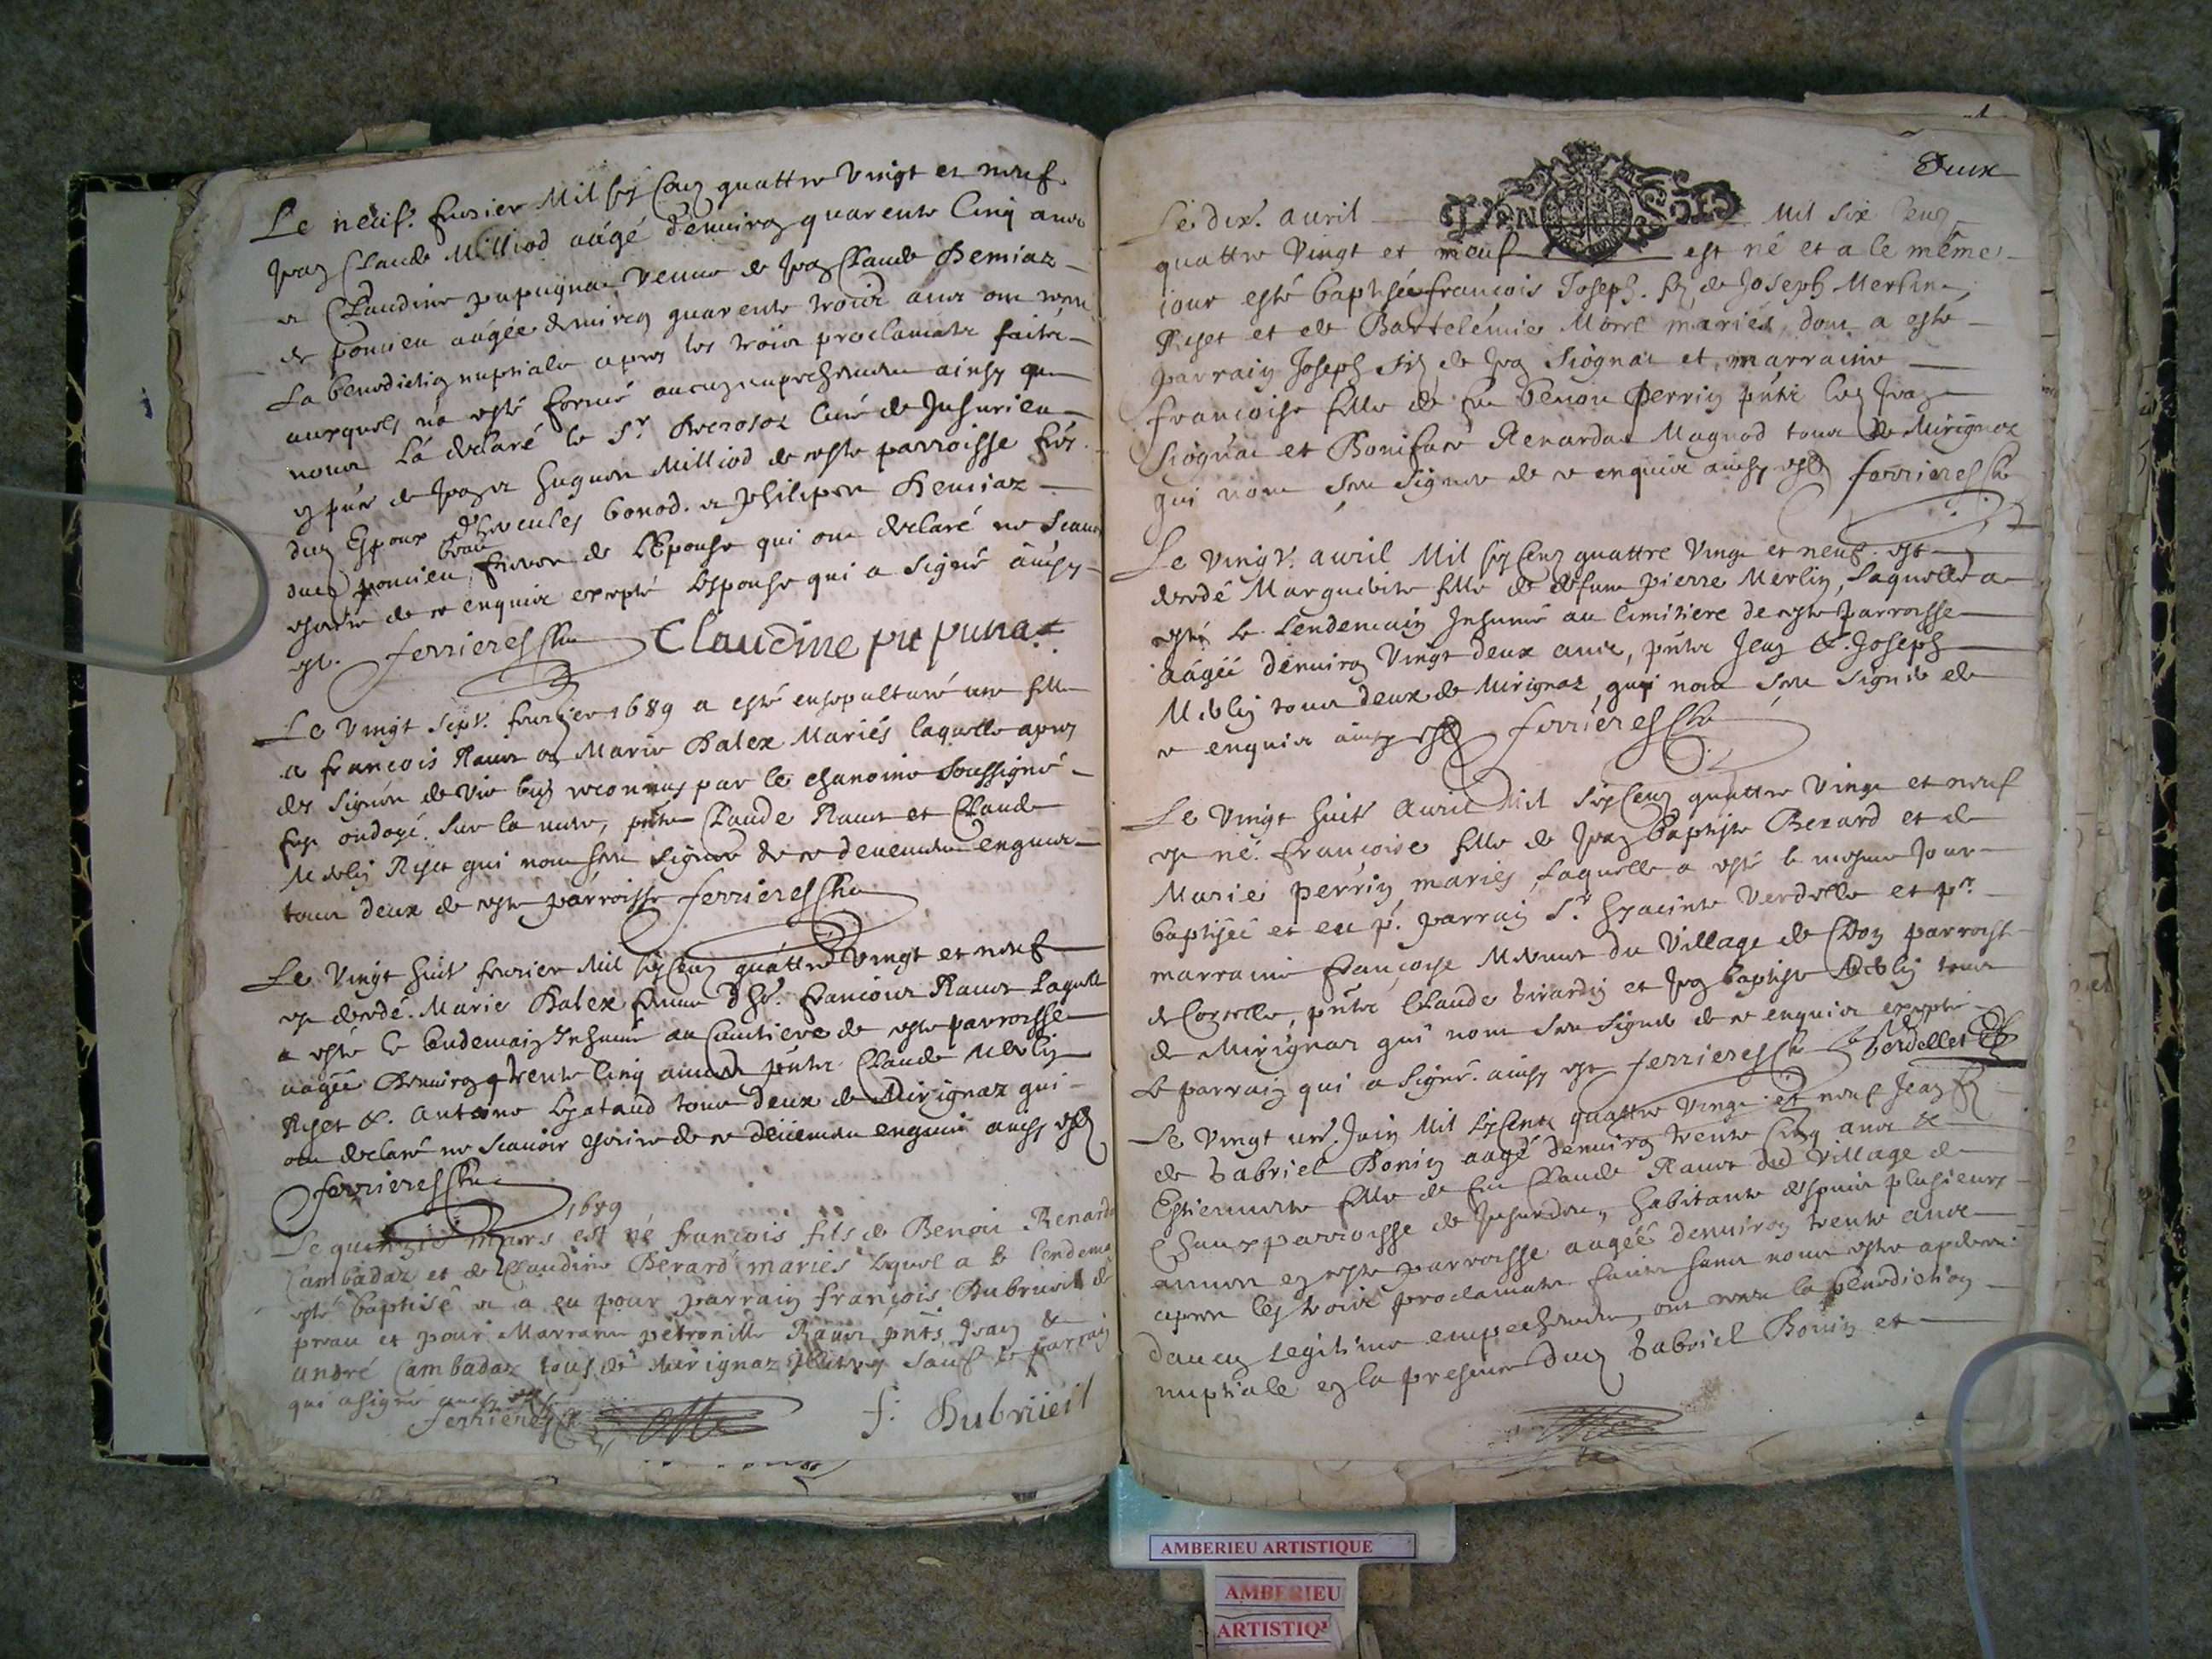 Le neuf. feurier Mil six Cens quattre Vingt et neuf
Jean Claude Milliod aâgé d'enuiron quarente Cinq ans
et Claudine pupuna Veuue de Jean Claude Demiaz
de poncieu aâgée denuiron quarente trois ans ont receu
La benediction nuptiale apres les trois proclamats faits
auxquels na esté formé aucun empechement ainsy que
nous L'a declaré le Sr. curé de Jnsurieu
en pnce de Jean et hugues Milliod de ceste parroisse
dud Espoux Hercules bonod. et philippe Demiaz
dud poncieu, de L'Epouse qui ont declaré ne scauoir
escrire de ce enquis excepté Lespouse qui a signé ainsy
est. ferrieres Che Claudine pupuna
Le Vingt sept. feurier 1689 a esté ensepulturé une fille
a françois Rauet et Marie Balex Mariés laquelle apres
des signes de vie bien reconnus par le chanoine soussigné
fust ondoyé. sur la mere, pnts Claude Rauet et Claude
Merlin Riset qui nont sceu signer de ce deuement enquis
tous deux de ceste parroisse ferrieres Che
Le Vingt huit feurier Mil six Cens quattre Vingt et neuf
est decedé. Marie Balex femme d'ho. francois Rauet Laquelle
a esté le lendemain Jnhumé au Cimitiere de ceste parroisse
aagée denuiron trente Cinq ans pnts Claude Merlin
Riset &. Antoine tous deux de Mirignaz qui
ont declaré ne scauoir escrire de ce deuement enquis ainsy est
ferrieres Che
1689
Le quinzie mars est né françois fils de Benoit Renard
Cambadaz et de Claudine Berard mariés lequel a le lendemain
esté baptisé et a eu pour parrain françois Dubrüeil de
preau et pour Marrane petronille Rauet pnts Jean &
andré Cambadaz tous de Mirignaz sauf le parrain
qui a signé ainsy est
ferrieres Che f. Dubrüeil
1
Deux
Le dix. auril Mil six Cens
quattre Vingt et neuf est né et a le même
iour esté baptisé francois Joseph. fils de Joseph Merlin
Riset et de Bartelémie Morel mariés, dont a esté
parrain Joseph fils de Jean Siognat et marraine
francoise fille de feu benoit Perrin pnts led Jean
Siognat et Boniface Renardat Magnod tous de Mirignaz
qui nont sceu signer de ce enquis ainsy est ferrieres Che
Le Vingt. auril Mil six Cens quattre Vingt et neuf. est
decedé Marguerite fille de defunt pierre Merlin, Laquelle a
esté le Lendemain Jnhumé au Cimitiere de ceste parroisse
aâgée denuiron Vingt deux ans, pnts Jean &. Joseph
Merlin tous deux de Mirignaz qui nont sceu signer de
ce enquis ainsy est ferrieres Che
Le Vingt huit Auril Mil six Cens quattre Vingt et neuf
est né. francoise fille de Jean baptiste Berard et de
Marie perrin mariés, Laquelle a esté le mesme Jour
baptisée et eu pr. parrain Sr. hyacinte Verdellet et pr.
marraine françoise du Village de Don parroisse
de, pnts Claude Girardin et Jean baptiste Merlin tous
de Mirignaz qui nont sceu signer de ce enquis excepté
le parrain qui a signé. ainsy est ferrieres Che Verdellet
Le Vingt un. Juin Mil six Cents quattre Vingt et neuf Jean fils
de Gabriel Bonin aagé denuiron trente Cinq ans &
Estiennette fille de feu Claude Rauet du Village de
Chaux parroisse de Jujurieu, habitante despuis plusieurs
années en ceste parroisse aagée denuiron trente ans
apres les trois proclamats faits sans nous estre apperceu
daucun legitime empechement, ont receu la benediction
nuptiale en la presence dud Gabriel Bonin et
AMBERIEU ARTISTIQUE
AMBERIEU
ARTISTIQ